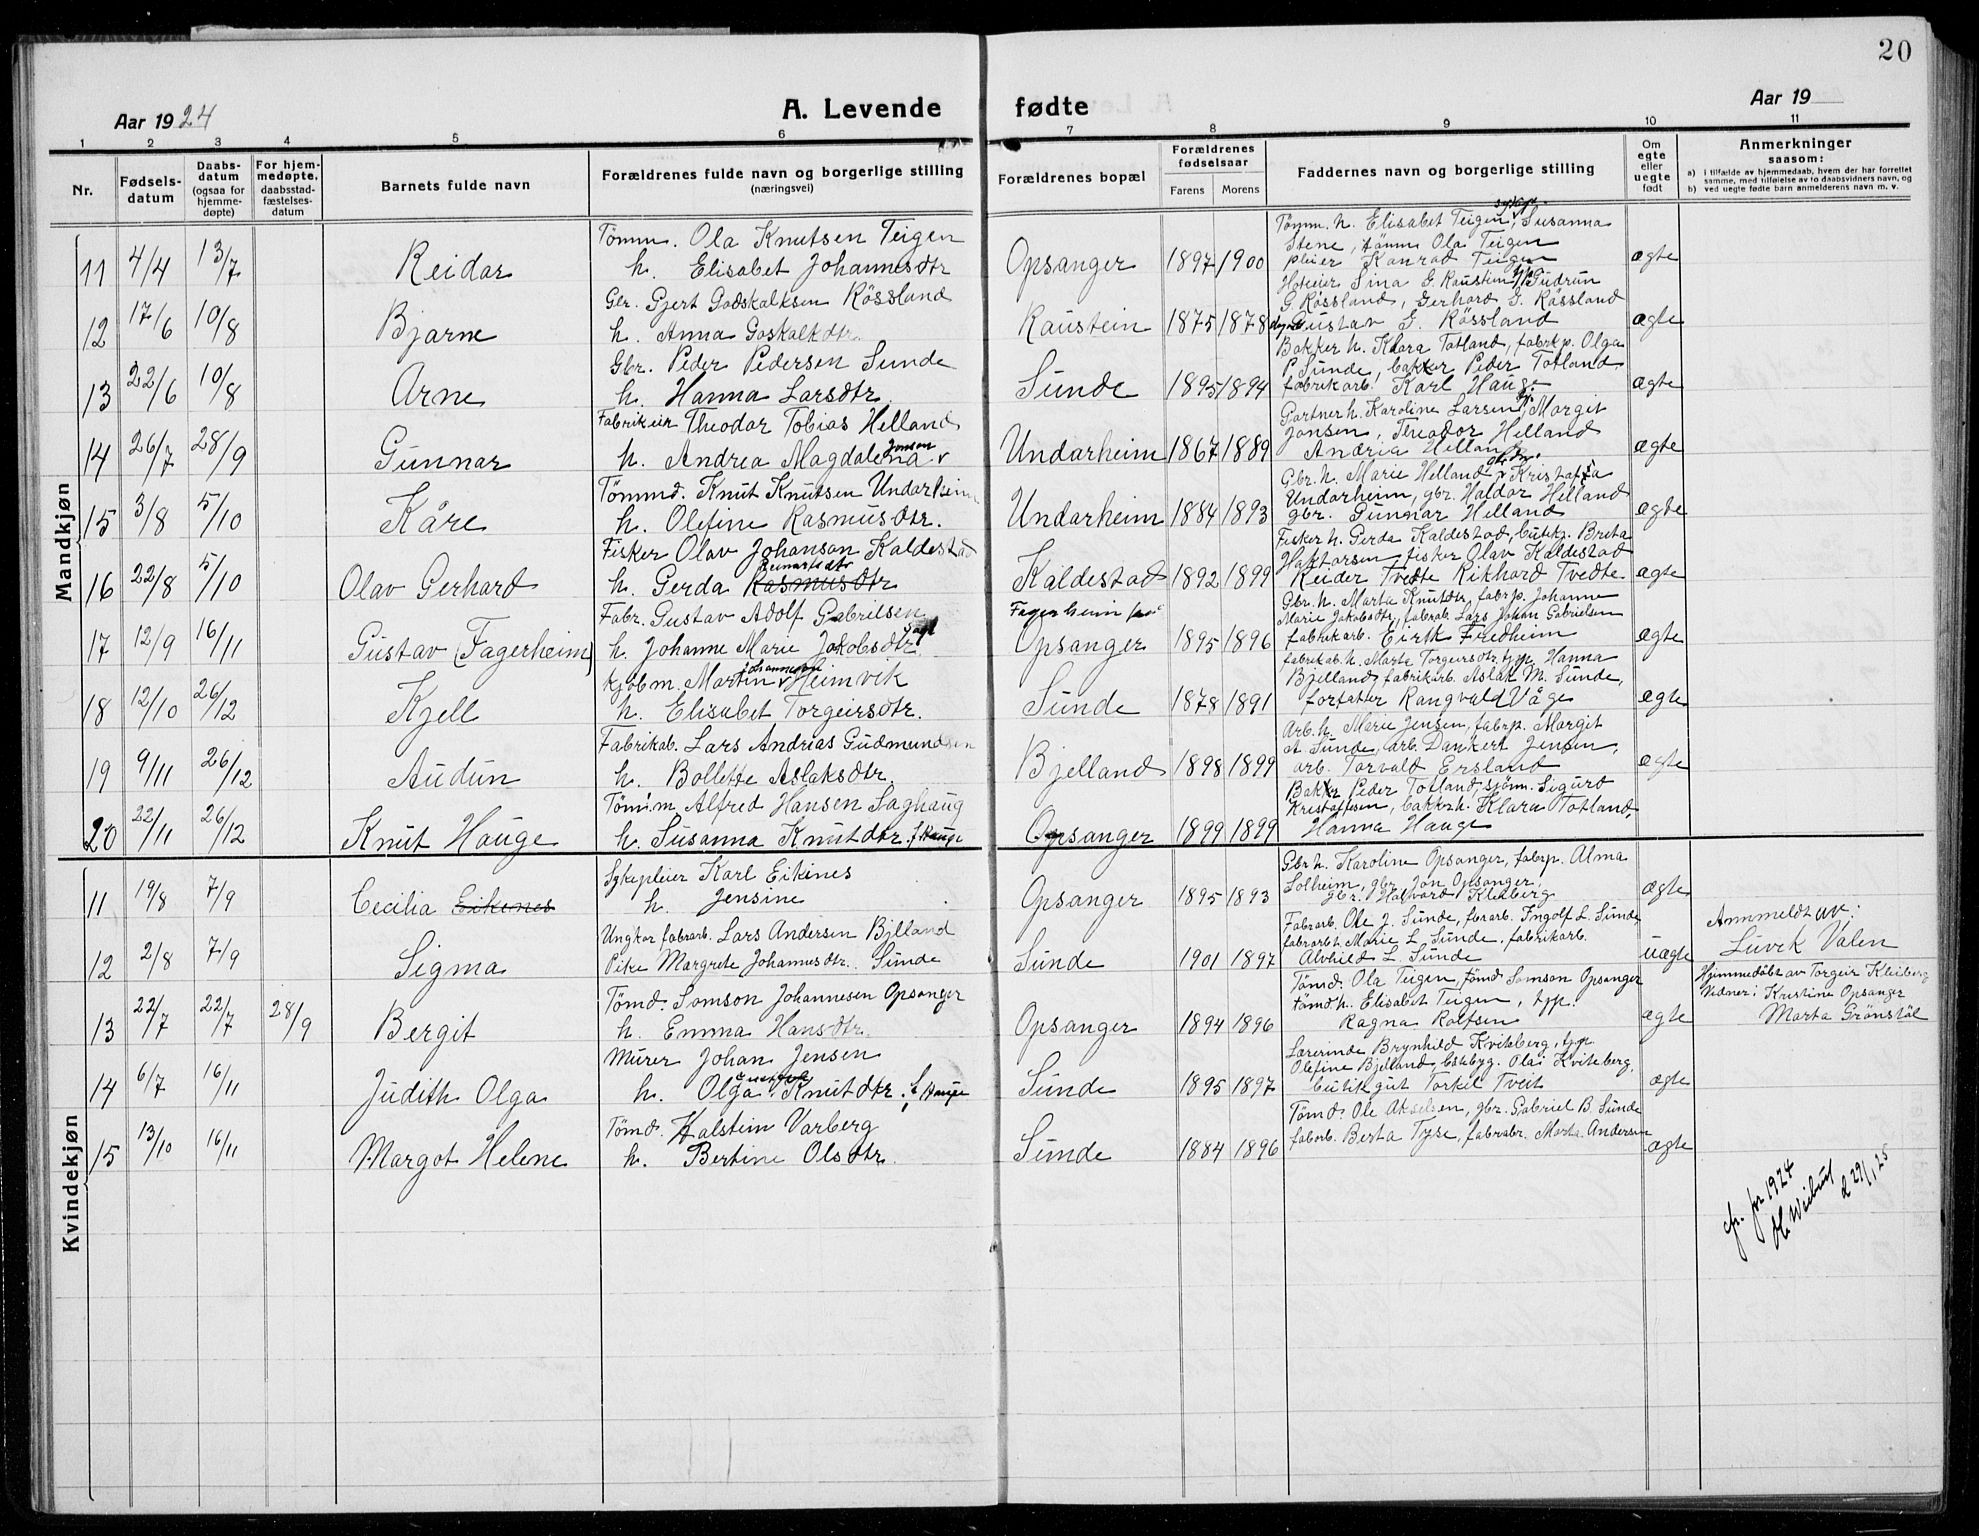 20
Aar 1924
A. Levende fødte
Aar 19
1 2 3 4 5 6 7 8 9 10 11
Nr.
Fødsels-
datum
Daabs-
datum
(ogsaa for
hjemme-
døpte)
For hjem-
medøpte,
daabsstad-
fæstelses-
datum
Barnets fulde navn
Forældrenes fulde navn og borgerlige stilling
(næringsvei)
Forældrenes bopæl
Forældrenes
fødselsaar
Farens Morens
Faddernes navn og borgerlige stilling
Om
egte
eller
uegte
født
Anmerkninger
saasom:
a) i tilfælde av hjemmedaab, hvem der har forrettet
samme, med tilføielse av to daabsvidners navn, og
b) ved uegte fødte barn anmelderens navn m. v.
Mandkjøn
11 4/4 13/7 Reidar
Tømm. Ola Knutsen Teigen
h. Elisabet Johannesdtr
Opsanger 1897 1900
Tømm. h. Elisabet Teigen, Susanna
Stene, tømm Ola Teigen
pleier Konrad Teigen
ægte
12 17/6 10/8 Bjarne
Gbr. Gjert Godskalksen Røssland
h. Anna Goskalkdtr.
Raustein 1875 1878
Hoteier Sina G. Raustein, Gudrun
G. Røssland, Gerhard G. Røssland
Gustav G. Røssland
ægte
13 22/6 10/8 Arne
Gbr. Peder Pedersen Sunde
h. Hanna Larsdtr.
Sunde 1895 1894
Bakker h. Klara Totland, fabrkp. Olga
P. Sunde, bakker Peder Totland
fabrikarb. Karl Hauge
ægte
14 26/7 28/9 Gunnar
Fabrikeier Theodor Tobias Helland
h. Andrea Magdalena Jonsen
Undarheim 1867 1889
Gartner h. Karoline Larsen, Margit
Jonsen, Theodor Helland
Andrea Helland
ægte
15 3/8 5/10 Kåre
Tømmd. Knut Knutsen Undarheim
h. Olefine Rasmusdtr.
Undarheim 1884 1893
Gbr. h. Marie Helland, Kristaffa
Undarheim, gbr. Haldor Helland
gbr. Gunnar Helland
ægte
16 22/8 5/10 Olav Gerhard
Fisker Olav Johanson Kaldestad
h. Gerda Rasmusdtr
Kaldestad 1892 1899
Fisker h. Gerda Kaldestad, butikp. Brita
Haktorsen, fisker Olav Kaldestad
Reider Tvedte Rikhard Tvedte
ægte
17 12/9 16/11 Gustav (Fagerheim)
Fabr. Gustav Adolf Gabrielsen
h. Johanne Marie Jakobsdtr.
Fagerheim
Opsanger 1895 1896
Gbr. h. Marta Knutdtr, fabrp. Johanne
Marie Jakobsdtr, fabrab. Lars Johan Gabrielsen
fabrikarb. Eirik Fredheim
ægte
18 12/10 26/12 Kjell
Kjøbm. Martin Johannesen Heimvik
h. Elisabet Torgeirsdtr.
Sunde 1878 1891
fabrikab. h. Marta Torgeirsdtr, tjp. Hanna
Bjelland, fabrikarb. Aslak M. Sunde,
forfatter Rangvald Våge
ægte
19 9/11 26/12 Audun
Fabrikab. Lars Andrias Gudmundsen
h. Bollette Aslaksdtr.
Bjelland 1898 1899
Arb. h. Marie Jensen, fabrp. Margit
A Sunde, arb. Dankert Jensen,
arb. Torvald Ersland
ægte
20 22/11 26/12 Knut Hauge
Tømm. Alfred Hansen Saghaug
h. Susanna Knutdtr. f. Hauge
Opsanger 1899 1899
Bakker Peder Totland, sjøm. Sigurd
Kristaffesen, bakker h. Klara Totland,
Hanna Hauge
Kvindekjøn
11 19/8 7/9 Cecilia Eikenes
Sykepleier Karl Eikenes
h. Jensine
Opsanger 1895 1893
Gbr h. Karoline Opsanger, fabrp. Alma
Solheim, gbr. Jon Opsanger,
gbr. Halvard Kleiberg
ægte
12 2/8 7/9 Sigma
Ungkar fabrarb. Lars Andersen Bjlland
Pike Margrete Johannesdtr. Sunde
Sunde 1901 1897
Fabrarb. Ole J. Sunde, fbrarb. Ingolf L. Sunde,
fabrarb h. Marie L Sunde, fabrikarb.
Alvhild L. Sunde
uægte
Anmeldt av:
Luvik Valen
13 22/7 22/7 28/9 Bergit
Tømd. Samson Johannesen Opsanger
h. Emma Hansdtr.
Opsanger 1894 1896
Tømd. Ola Teigen, tømd Samson Opsanger
tømd h. Elisabet Teigen, tjp.
Ragna Rolfsen
ægte
Hjemmedøbt av Torgeir Kleiberg
Vidner: Kristine Opsanger
Marta Grønstøl
14 6/7 16/11 Judith Olga
Murer Johan Jensen
h. Olga Knutdtr. f. Hauge
Sunde 1895 1897
Lærerinde Brynhild Kviteberg, tjp.
Olefine Bjelland, Ola Kviteberg,
butikgut Torkel Tveit
ægte
15 13/10 16/11 Margot Helene
Tømd. Halstein Varberg
h. Bertine Olsdtr.
Sunde 1884 1896
Tømd. Ole Akselsen, gbr. Gabriel B. Sunde
faborb. Berta Tyse, fabrabr. Marta Andersen
ægte
1924